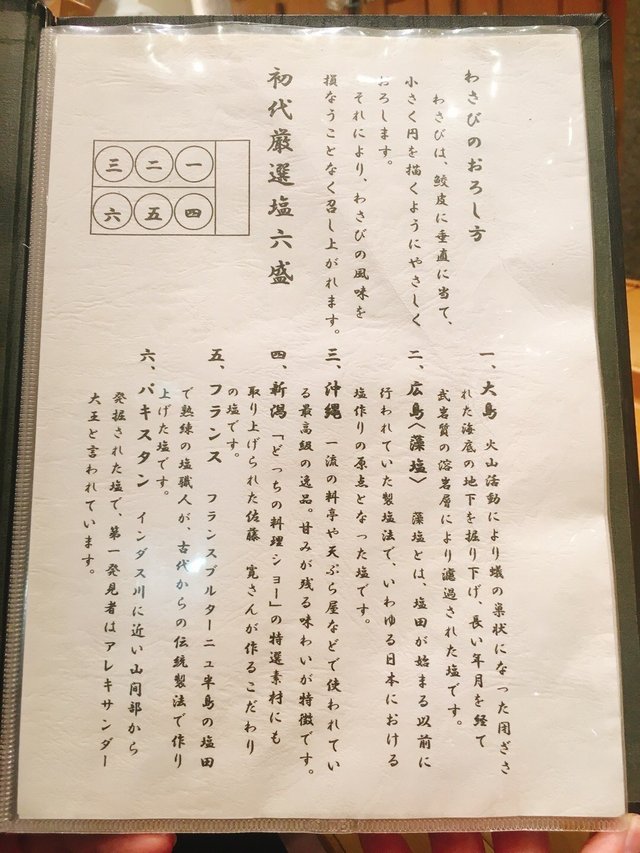 わさびのおろし方
わさびは、鮫皮に垂直に当て、
小さく円を描くようにやさしく
おろします。
それにより、わさびの風味を
損なうことなく召し上がれます。
初代厳選塩六盛
三 二 一
六 五 四
一、大島 火山活動により蟻の巣状になった閉ざさ
れた海底の地下を掘り下げ、長い年月を経て
武岩質の溶岩層により濾過された塩です。
二、広島〈藻塩〉 藻塩とは、塩田が始まる以前に
行われていた製塩法で、いわゆる日本における
塩作りの原点となった塩です。
三、沖縄 一流の料亭や天ぷら屋などで使われてい
る最高級の逸品。甘みが残る味わいが特徴です。
四、新潟 「どっちの料理ショー」の特選素材にも
取り上げられた佐藤 寛さんが作るこだわり
の塩です。
五、フランス フランスブルターニュ半島の塩田
で熟練の塩職人が、古代からの伝統製法で作り
上げた塩です。
六、パキスタン インダス川に近い山間部から
発掘された塩で、第一発見者はアレキサンダー
大王と言われています。